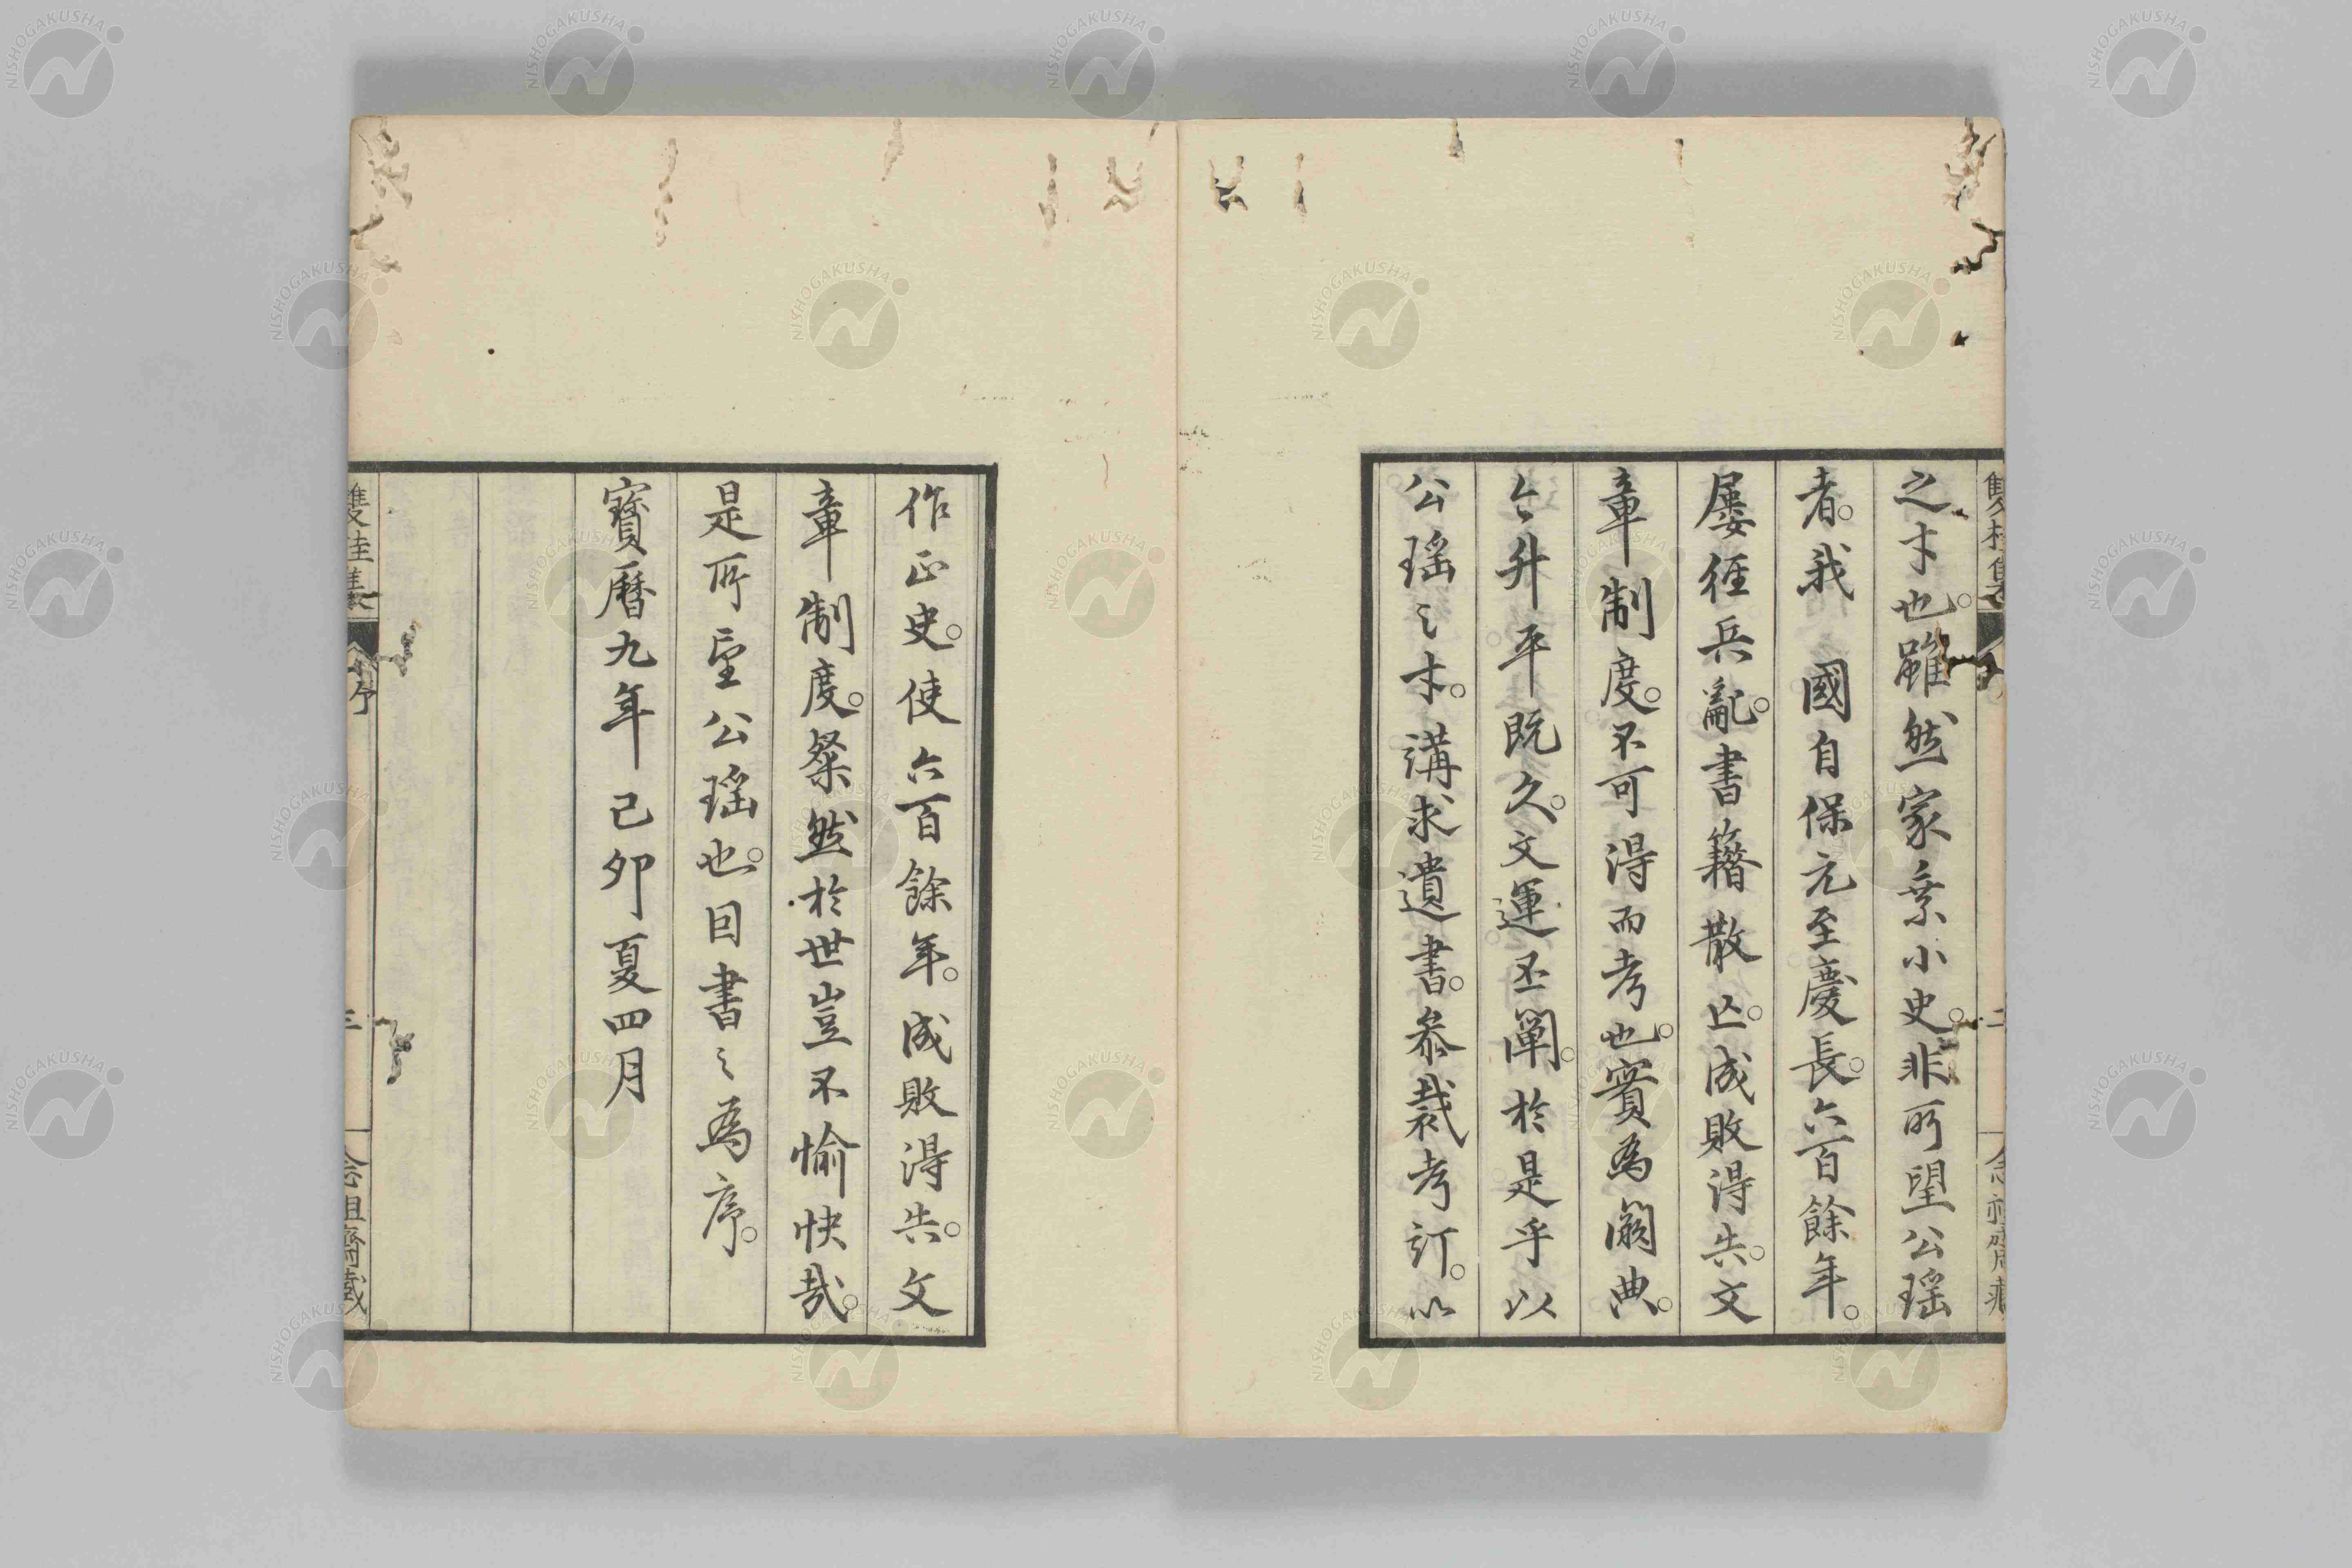 之才也。雖然家乘小史。非所望公瑶
者。我 國自保元至慶長。六百餘年。
屢經兵亂。書籍散亡。成敗得失。文
章制度。不可得而考也。實為闕典。
今升平既久。文運丕闡。於是乎以
公瑶之才。講求遺書。參裁考訂。以
作正史。使六百餘年。成敗得失。文
章制度。粲然於世豈不愉快哉。
是所望公瑶也。因書之為序。
寶曆九年己卯夏四月
雙桂集
序
三
念祖齋藏